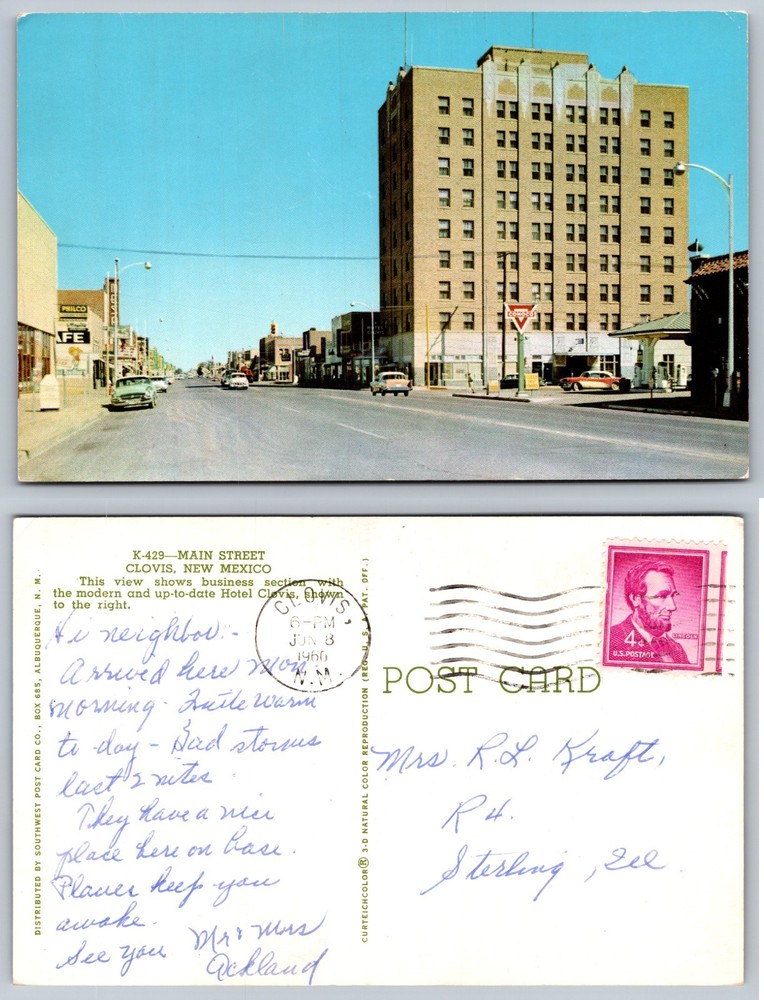 PHILCO
FE
CONOCO
K-429—MAIN STREET
CLOVIS, NEW MEXICO
This view shows business section with
the modern and up-to-date Hotel Clovis, shown
to the right.
Hi neighbor -
Arrived here Mon.
morning - Quite warm
to-day - Had storms
last 2 nites.
They have a nice
place here on base.
Planes keep you
awake.
See you
Mr & Mrs
Ackland
DISTRIBUTED BY SOUTHWEST POST CARD CO., BOX 685, ALBUQUERQUE, N. M.
CURTEICHCOLOR® 3-D NATURAL COLOR REPRODUCTION (REG. U. S. A. PAT. OFF.)
CLOVIS,
6-PM
JUN 8
1960
N.M.
4¢
LINCOLN
U.S. POSTAGE
POST CARD
Mrs. R. L. Kraft,
R 4.
Sterling, Ill